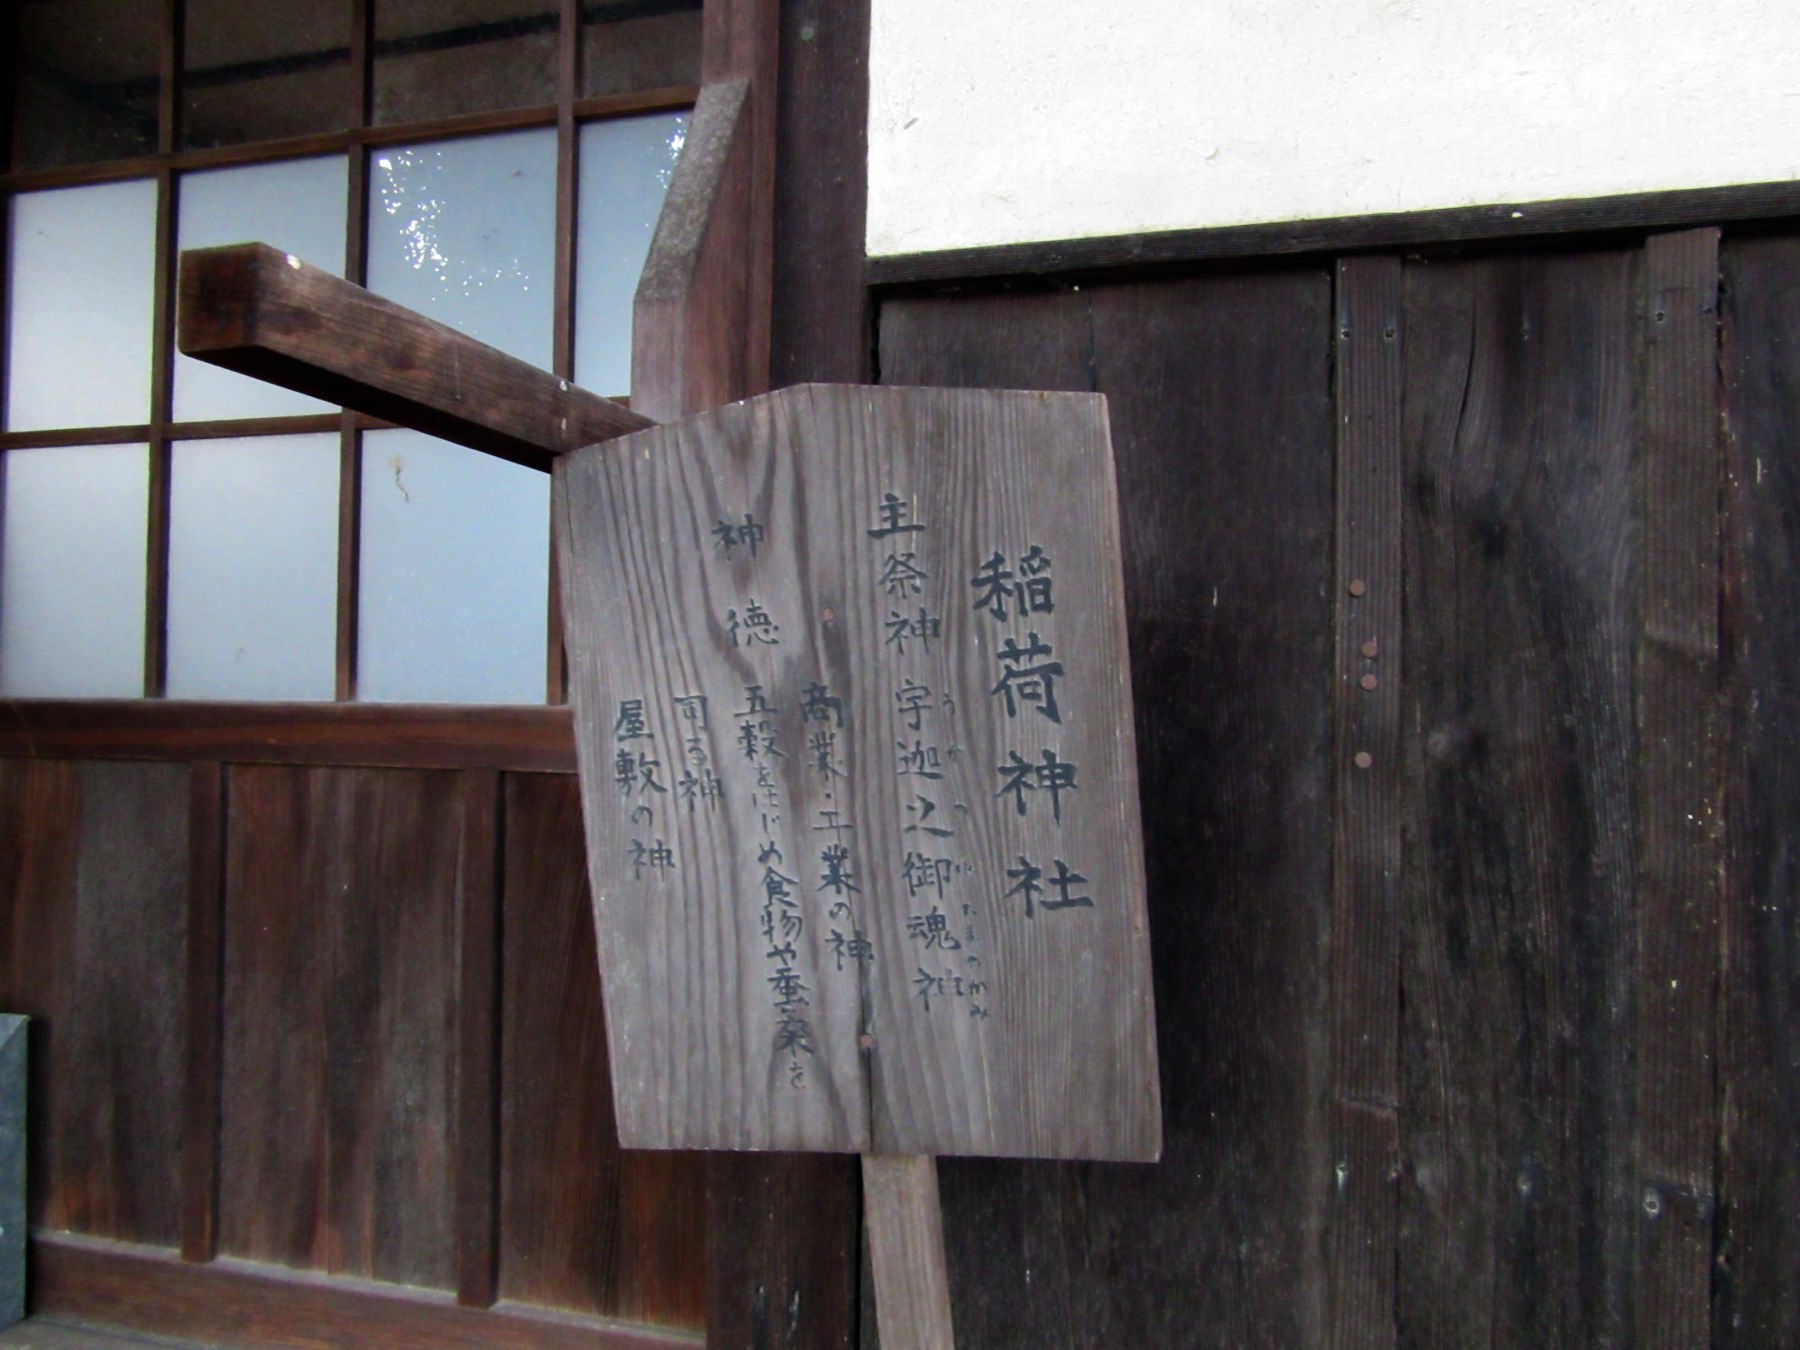 稲荷神社
主祭神 宇迦之御魂神
うかのみたまのかみ
神徳 商業・工業の神
五穀をはじめ食物や蚕桑を
司る神
屋敷の神